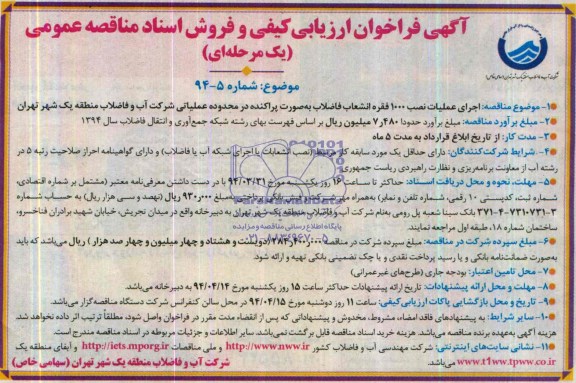 آگهی فراخوان ارزیابی کیفی و فروش اسناد مناقصه عمومی
(یک مرحله‌ای)
موضوع: شماره ۵-۹۴
۱- موضوع مناقصه: اجرای عملیات نصب ۱۰۰۰ فقره انشعاب فاضلاب به‌صورت پراکنده در محدوده عملیاتی شرکت آب و فاضلاب منطقه یک شهر تهران
۲- مبلغ برآورد مناقصه: مبلغ برآورد حدودا میلیون ریال بر اساس فهرست بهای رشته شبکه جمع‌آوری و انتقال فاضلاب سال ۱۳۹۴
۳- مدت کار: از تاریخ ابلاغ قرارداد به مدت ۵ ماه
۴- شرایط شرکت‌کنندگان: دارای حداقل یک مورد سابقه کار مرتبط (نصب انشعابات یا اجرای شبکه آب یا فاضلاب) و دارای گواهینامه احراز صلاحیت رتبه ۵ در
رشته آب از معاونت برنامه‌ریزی و نظارت راهبردی ریاست جمهوری
۵- مهلت، نحوه و محل دریافت اسناد: حداکثر تا ساعت ۱۶ روز یکشنبه مورخ با در دست داشتن معرفی‌نامه معتبر (مشتمل بر شماره اقتصادی،
شماره ثبت، کدپستی ۱۰ رقمی، شماره تلفن و نمابر) به‌همراه مبلغ ۹۳۰٫۰۰۰ ریال (نهصد و سی هزار ریال) به حساب شماره
بانک سینا شعبه پل رومی به‌نام شرکت آب و فاضلاب منطقه یک شهر تهران به دبیرخانه واقع در میدان تجریش، خیابان شهید برادران فناخسرو،
ساختمان شماره ۱۸، طبقه اول مراجعه نمایند.
۶- مبلغ سپرده شرکت در مناقصه: مبلغ سپرده شرکت در مناقصه ۲۸۴٫۴۰۰٫۰۰۰ (دویست و هشتاد و چهار میلیون و چهار صد هزار) ریال می‌باشد که باید
به‌صورت ضمانت‌نامه بانکی و یا رسید پرداخت نقدی و یا چک تضمینی بانکی تهیه و ارائه شود.
۷- محل تامین اعتبار: بودجه جاری (طرح‌های غیرعمرانی)
۸- مهلت و محل ارائه پیشنهادات: تاریخ ارائه پیشنهادات حداکثر ساعت ۱۵ روز یکشنبه مورخ ۹۴/۰۴/۱۴ به دبیرخانه می‌باشد.
۹- تاریخ و محل بازگشایی پاکات ارزیابی کیفی: ساعت ۱۱ روز دوشنبه مورخ ۹۴/۰۴/۱۵ در محل سالن کنفرانس شرکت دستگاه مناقصه‌گزار می‌باشد.
۱۰- سایر شرایط: به پیشنهادهای فاقد امضاء، مشروط، مخدوش و پیشنهاداتی که پس از انقضاء مدت مقرر در فراخوان واصل شود، مطلقاً ترتیب اثر داده نخواهد شد.
هزینه آگهی به‌عهده برنده مناقصه می‌باشد. هزینه خرید اسناد مناقصه قابل برگشت نمی‌باشد. سایر اطلاعات و جزئیات مربوطه در اسناد مناقصه مندرج است.
۱۱- نشانی سایت‌های اینترنتی: شرکت مهندسی آب و فاضلاب کشور http://www.nww.ir و ملی مناقصات http://iets.mporg.ir و آبفای منطقه یک
www.t1ww.tpww.co.ir می‌باشد.
شرکت آب و فاضلاب منطقه یک شهر تهران (سهامی خاص)